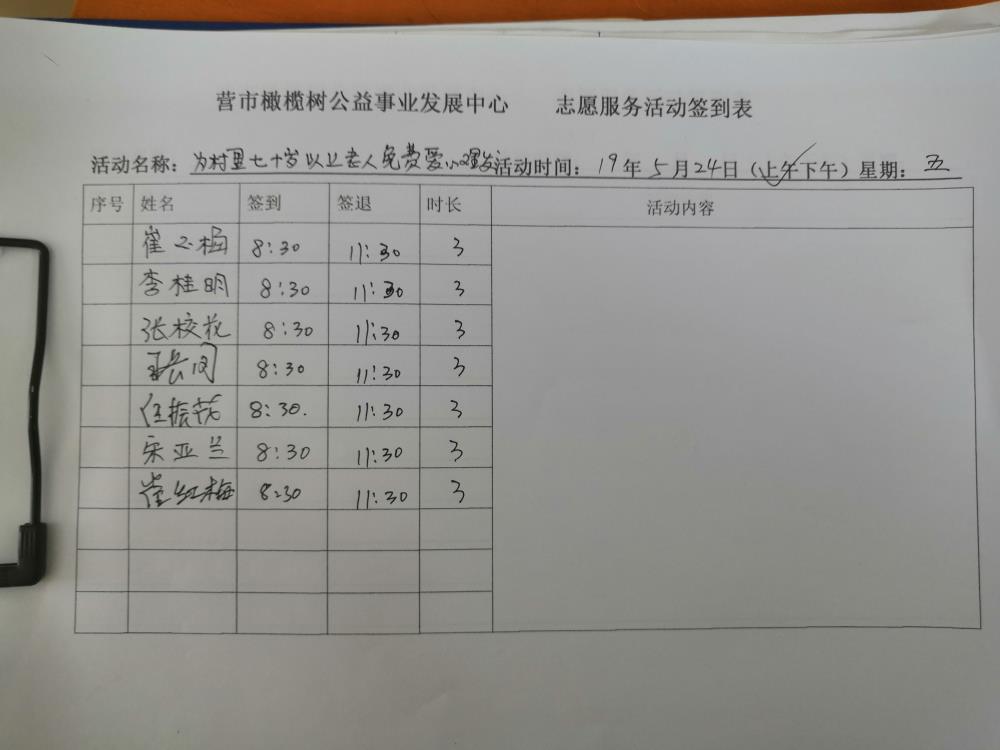 营市橄榄树公益事业发展中心 志愿服务活动签到表
活动名称：为村里七十岁以上老人免费爱心理发 活动时间：19年5月24日（上午下午）星期：五
序号 姓名 签到 签退 时长 活动内容
崔 8:30 11:30 3
李桂明 8:30 11:30 3
张校花 8:30 11:30 3
8:30 11:30 3
任振花 8:30. 11:30 3
宋亚兰 8:30 11:30 3
崔红梅 8:30 11:30 3